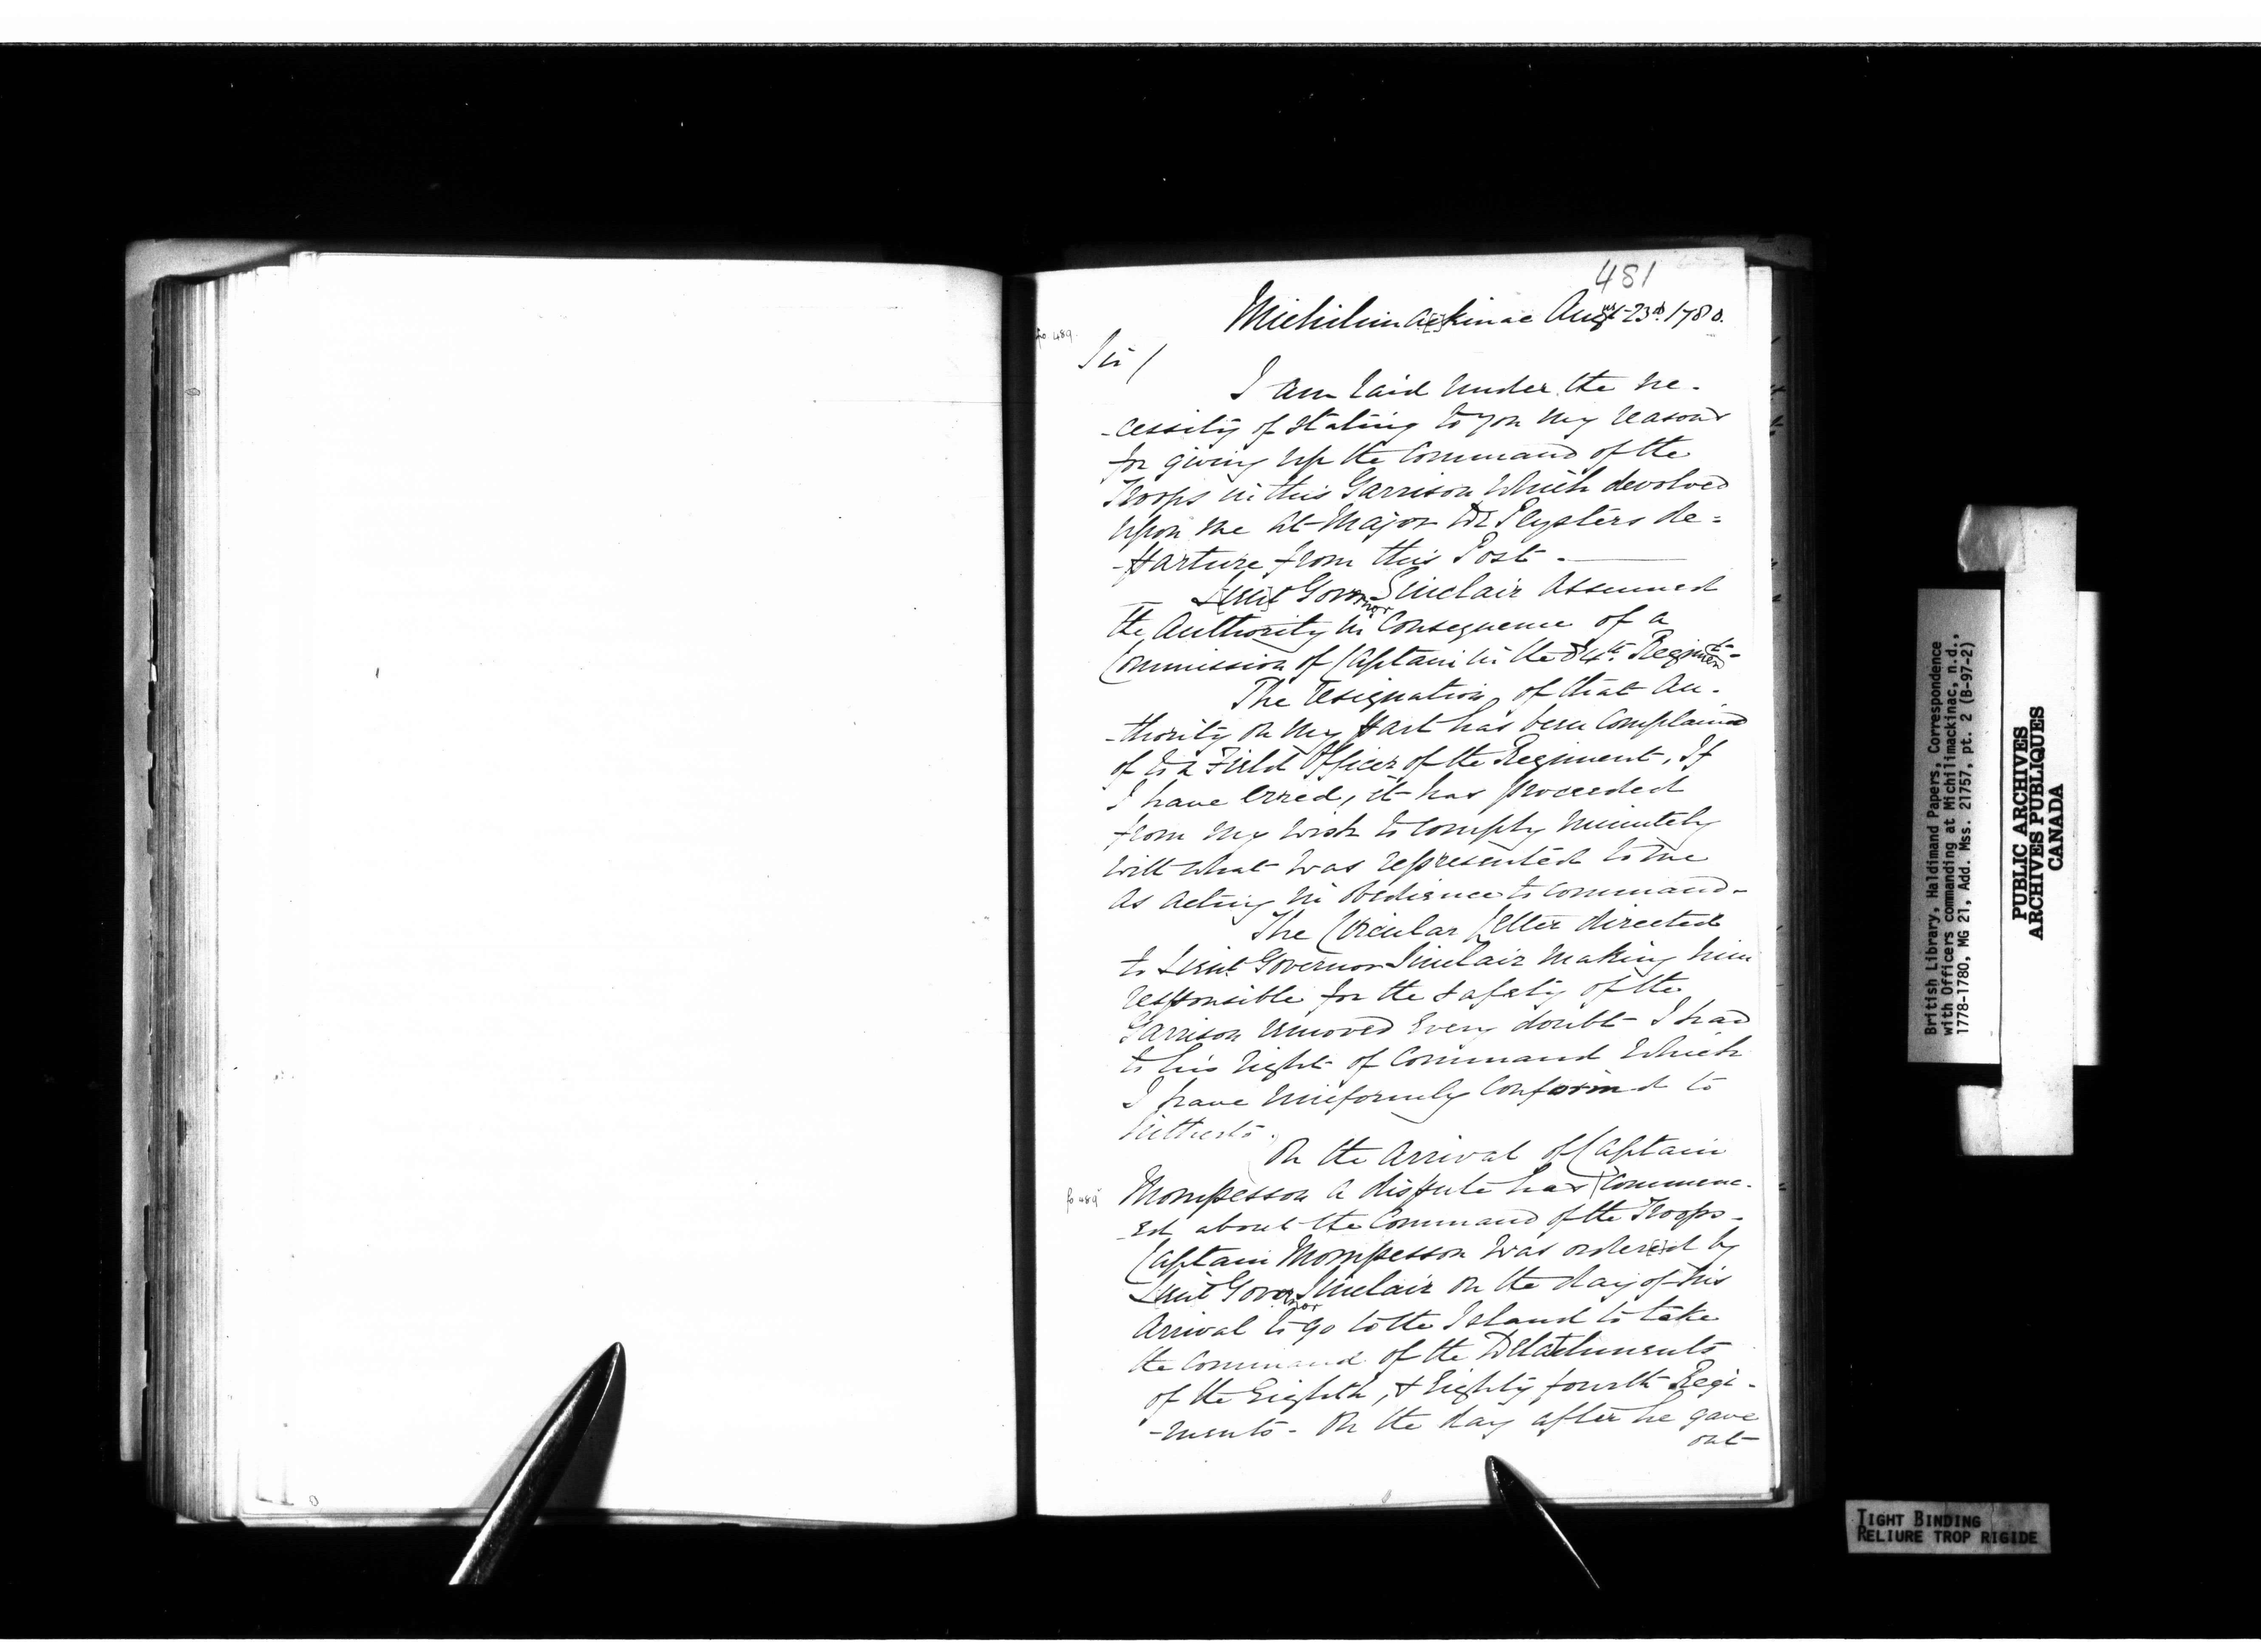 481
Michilimackinac Augst 23d. 1780.
fo. 489.
Sir/
I am laid under the ne-
-cessity of stating to you my reasons
for giving up the Command of the
Troops in this Garrison Which devolved
upon me at Major De Peysters de=
-parture from this Post. —
Lieut Governor Sinclair assumed
the Authority in Consequence of a
Commission of Captain in the 84th. Regiment-
The resignation of that Au-
-thority on my part has been Complained
of to a Field Officer of the Regiment, If
I have Erred, it has proceeded
from my wish to comply minutely
with what was represented to me
as acting in obedience to command-
The Circular Letter directed
to Lieut Governor Sinclair making him
responsible for the safety of the
Garrison removed Every doubt I had
to his right of Command Which
I have uniformly Conformd to
hitherto.
On the Arrival of Captain
fo 489v
Mompesson a dispute has Commenc-
-ed about the Command of the Troops-
Captain Mompesson was ordered by
Lieut Governor Sinclair on the day of his
Arrival to go to the Island to take
the Command of the Detatchments
of the Eighth, & Eighty fourth Regi-
-ments - On the day after he gave
out
British Library, Haldimand Papers, Correspondence
with Officers commanding at Michilimackinac, n.d.,
1778-1780, MG 21, Add. Mss. 21757, pt. 2 (B-97-2)
PUBLIC ARCHIVES
ARCHIVES PUBLIQUES
CANADA
TIGHT BINDING
RELIURE TROP RIGIDE